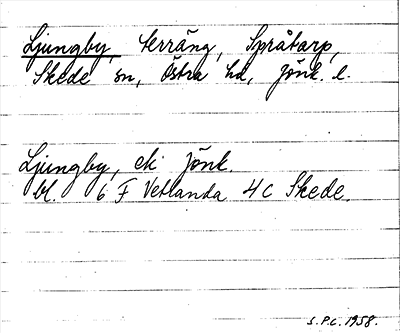 Ljungby, terräng, Språtarp,
Skede sn, Östra hd, Jönk. l.
Ljungby, ek Jönk.
bl. 6 F Vetlanda 4 c Skede.
S.P.C. 1958.